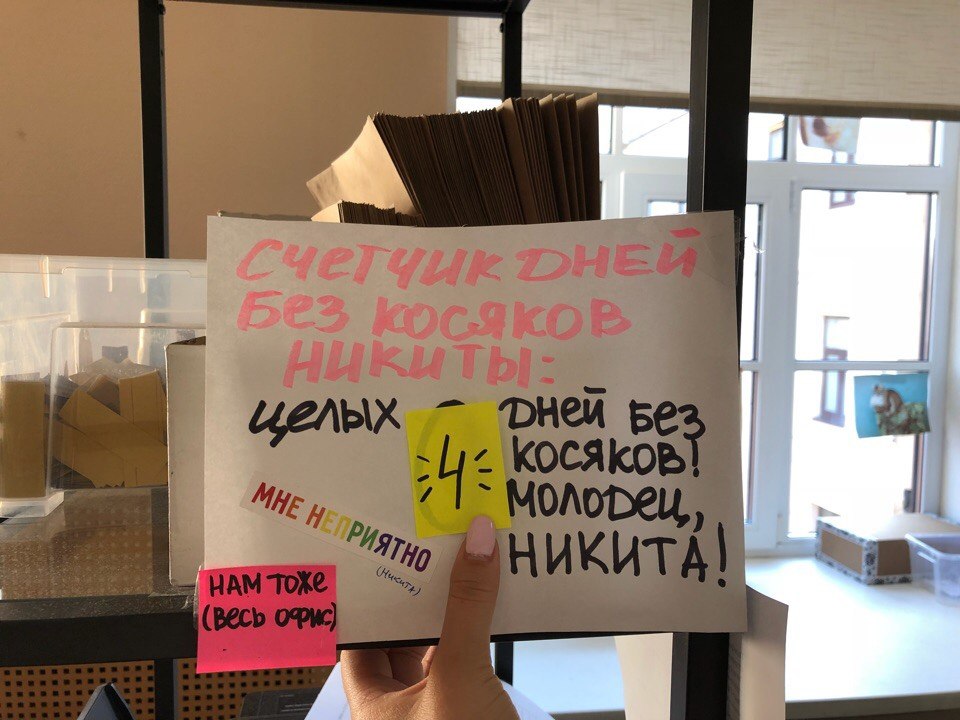 Счетчик дней
без косяков
Никиты:
целых 4 дней без
косяков!
молодец,
Никита!
МНЕ НЕПРИЯТНО
(Никита)
НАМ ТОЖЕ
(ВЕСЬ ОФИС)